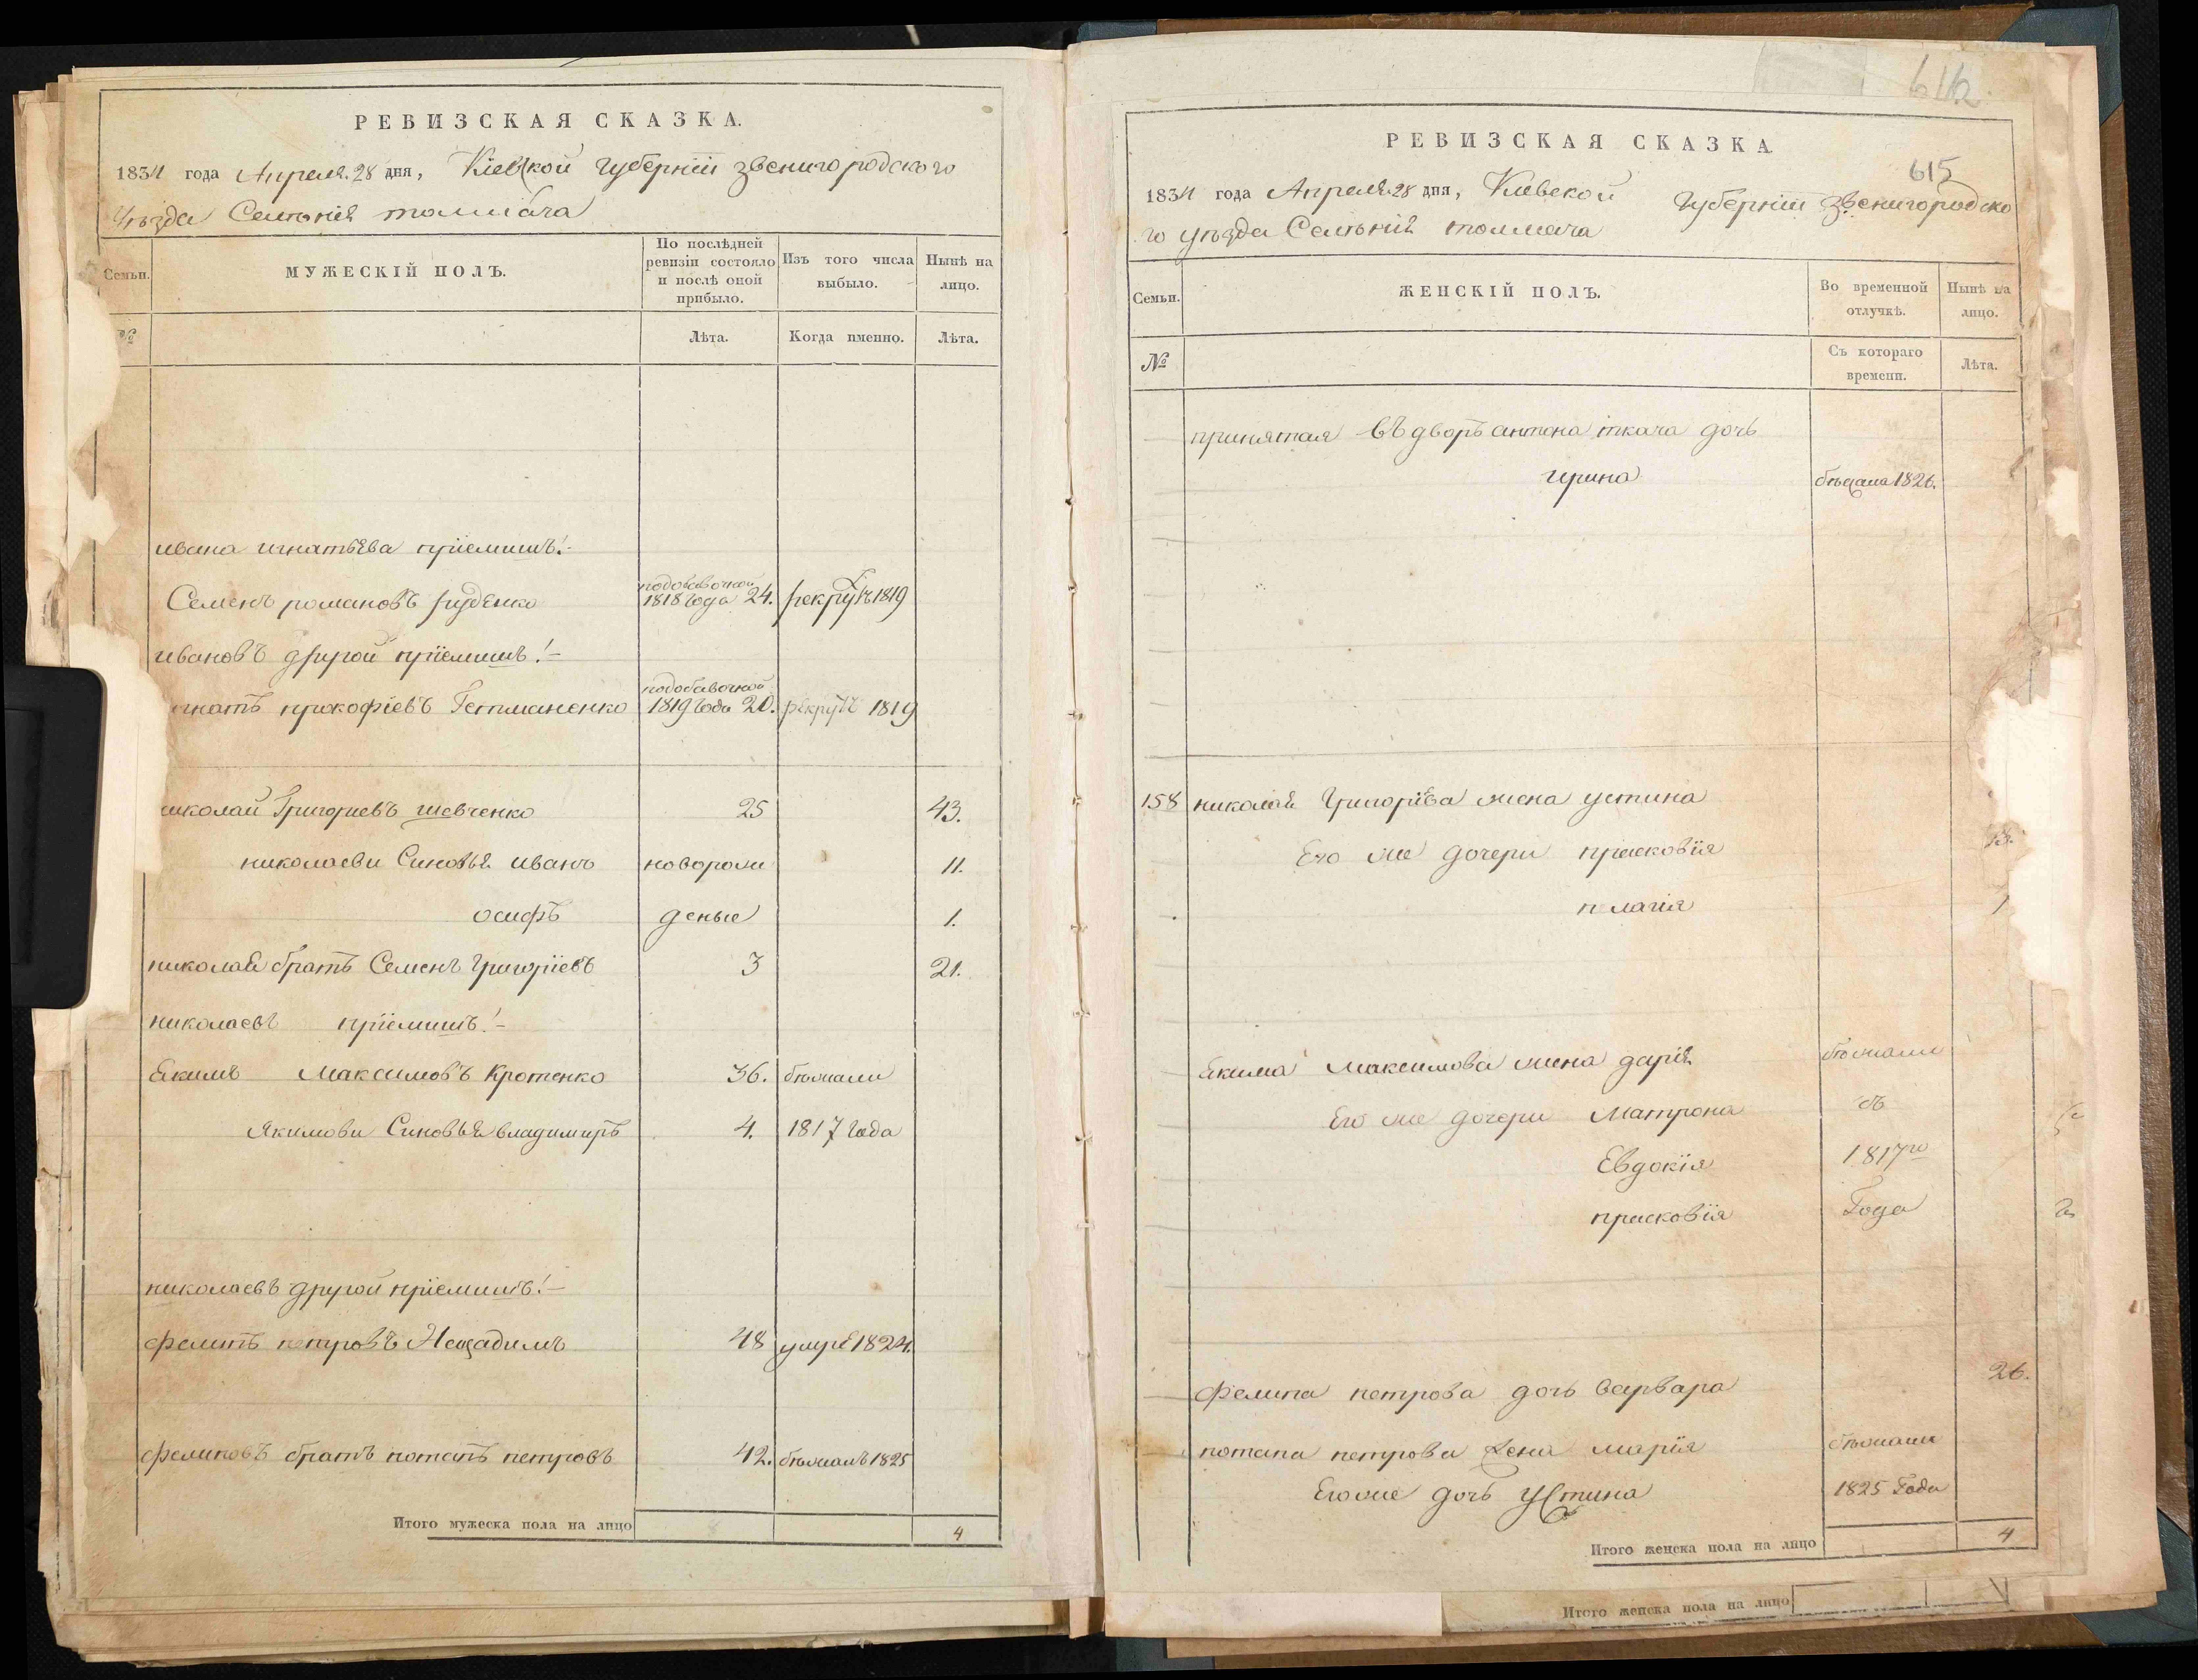 РЕВИЗСКАЯ СКАЗКА.
1834 года Апреля 28 дня, Кіевской губерніи звенигородского
Уѣзда Селѣнія толмача
Семьи.
МУЖЕСКІЙ ПОЛЪ.
По послѣдней ревизіи состояло и послѣ оной прибыло.
Изъ того числа выбыло.
Нынѣ на лицо.
№
Лѣта.
Когда именно.
Лѣта.
ивана игнатьева пріемишъ!-
Семенъ романовъ руденко
подобавочной 1818 года 24. рекрутъ 1819
ивановъ другой пріемишъ!-
игнатъ прокофіевъ Гетманенко
подобавочной 1819 года 20. рекрутъ 1819
николай Григориевъ шевченко 25 43.
николаеви Синовья иванъ новорож 11.
осифъ деные 1.
николая братъ Семенъ Григоріевъ 3 21.
николаевъ пріемишъ!-
Екимъ Максимовъ Кротенко 36. бѣжали
Якимови Синовья владимиръ 4. 1817 Года
николаевъ другой пріемишъ!-
фелипъ петровъ 48 умре 1824.
фелиповъ братъ потапъ петровъ 42. бѣжалъ 1825
Итого мужеска пола на лицо 4
612
615
РЕВИЗСКАЯ СКАЗКА
1834 года Апреля 28 дня, Кіевской Губерніи звенигородско
го уѣзда Селѣнія толмача
Семьи.
ЖЕНСКІЙ ПОЛЪ.
Во временной отлучкѣ.
Нынѣ на лицо.
№
Съ котораго времени.
Лѣта.
принятая въ дворъ антона ткача дочь
ирина бѣжала 1826.
158 николая Григоріева жена устина
Его же дочери прасковія
пелагія
Екима Максимова жена дарія бѣжали
Его же дочери Матрона съ
Евдокія 1817го
прасковія Года
фелипа петрова дочь варвара 26.
потапа петрова жена марія бѣжали
Его же дочь Устина 1825 Года
Итого женска пола на лицо 4
Итого женска пола на лицо